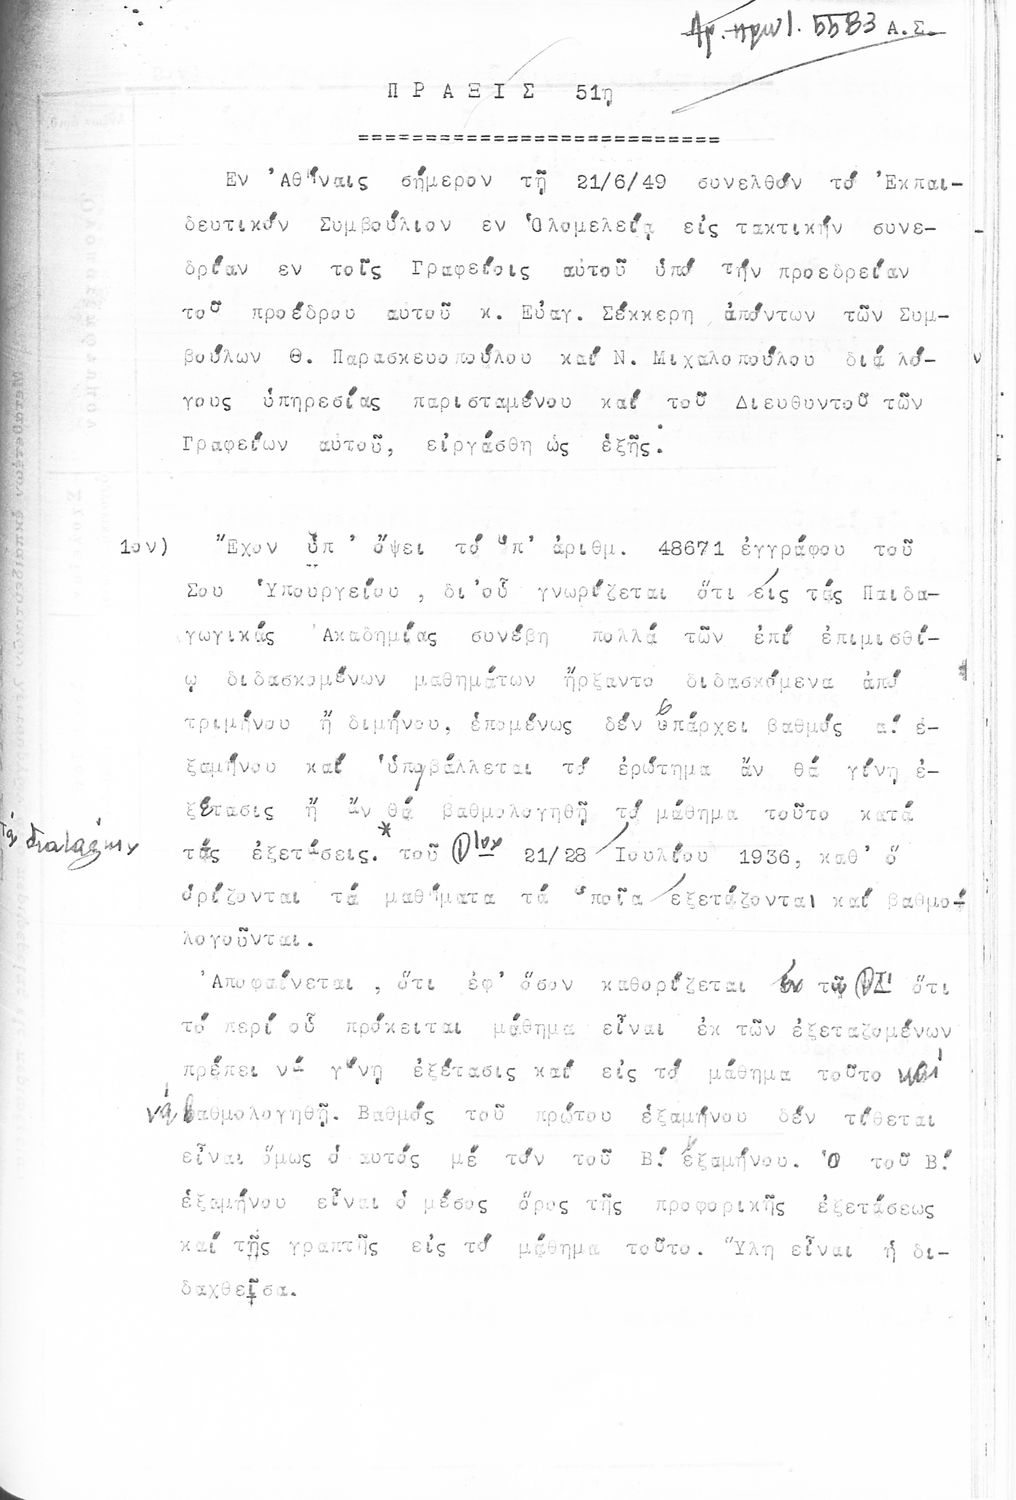 Ἀρ. πρωτ. 5583 Α.Σ.
Π Ρ Α Ξ Ι Σ 51η
===========================
Εν Ἀθήναις σήμερον τῇ 21/6/49 συνελθόν τό Ἐκπαι-
δευτικόν Συμβούλιον εν Ὁλομελείᾳ είς τακτικήν συνε-
δρίαν εν τοῖς Γραφείοις αὐτοῦ ὑπό τήν προεδρείαν
τοῦ προέδρου αυτοῦ κ. Εὐαγ. Σέκκερη ἀπόντων τῶν Συμ-
βούλων Θ. Παρασκευοπούλου καί Ν. Μιχαλοπούλου διά λό-
γους ὑπηρεσίας παρισταμένου καί τοῦ Διευθυντοῦ τῶν
Γραφείων αὐτοῦ, είργάσθη ὡς ἑξῆς:
1ον) Ἔχον ὑπ' ὄψει τό ὑπ' ἀριθμ. 48671 ἐγγράφου τοῦ
Σου Ὑπουργείου, δι'οὗ γνωρίζεται ὅτι εἰς τάς Παιδα-
γωγικάς Ἀκαδημίας συνέβη πολλά τῶν ἐπί ἐπιμισθί-
ῳ διδασκομένων μαθημάτων ἤρξαντο διδασκόμενα ἀπό
τριμήνου ἤ διμήνου, ἑπομένως δέν ὑπάρχει βαθμός α! ἑ-
ξαμήνου καί ὑποβάλλεται τό ἐρώτημα ἄν θά γίνῃ ἐ-
ξέτασις ἤ ἄν θά βαθμολογηθῇ τό μάθημα τοῦτο κατά
τάς ἐξετάσεις.* τοῦ 21/28 Ἰουλίου 1936, καθ' ὅ
τάς διατάξεις
ὁρίζονται τά μαθήματα τά ὁποῖα ἐξετάζονται καί βαθμο-
λογοῦνται.
Ἀποφαίνεται, ὅτι ἐφ' ὅσον καθορίζεται ἐν τῷ ὅτι
τό περί οὗ πρόκειται μάθημα εἶναι ἐκ τῶν ἐξεταζομένων
πρέπει νά γίνῃ ἐξέτασις καί είς τό μάθημα τοῦτο καί
νά βαθμολογηθῇ. Βαθμός τοῦ πρώτου ἑξαμήνου δέν τίθεται
εἶναι ὅμως ὁ αυτός μέ τόν τοῦ Β! ἑξαμήνου. Ὁ τοῦ Β!
ἑξαμήνου εἶναι ὁ μέσος ὅρος τῆς προφορικῆς ἐξετάσεως
καί τῆς γραπτῆς είς τό μάθημα τοῦτο. Ὕλη εἶναι ἡ δι-
δαχθεῖσα.